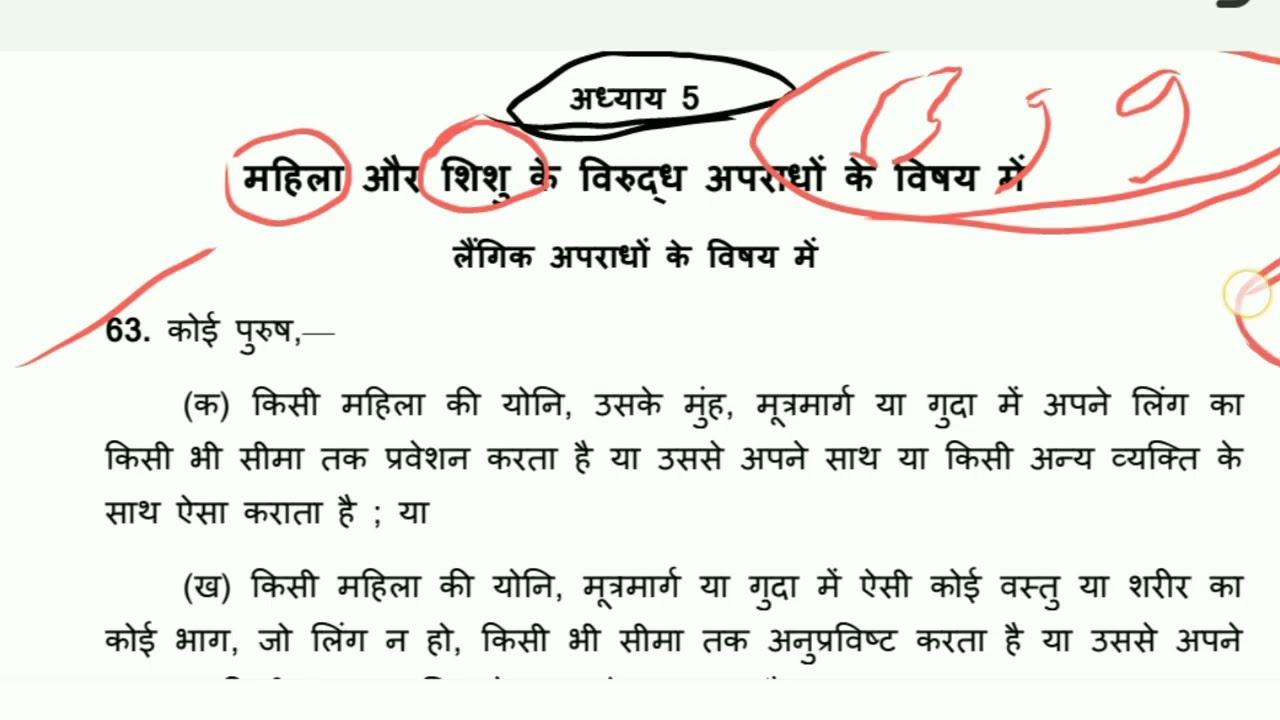 अध्याय 5
महिला और शिशु के विरुद्ध अपराधों के विषय में
लैंगिक अपराधों के विषय में
63. कोई पुरुष,—
(क) किसी महिला की योनि, उसके मुंह, मूत्रमार्ग या गुदा में अपने लिंग का
किसी भी सीमा तक प्रवेशन करता है या उससे अपने साथ या किसी अन्य व्यक्ति के
साथ ऐसा कराता है ; या
(ख) किसी महिला की योनि, मूत्रमार्ग या गुदा में ऐसी कोई वस्तु या शरीर का
कोई भाग, जो लिंग न हो, किसी भी सीमा तक अनुप्रविष्ट करता है या उससे अपने